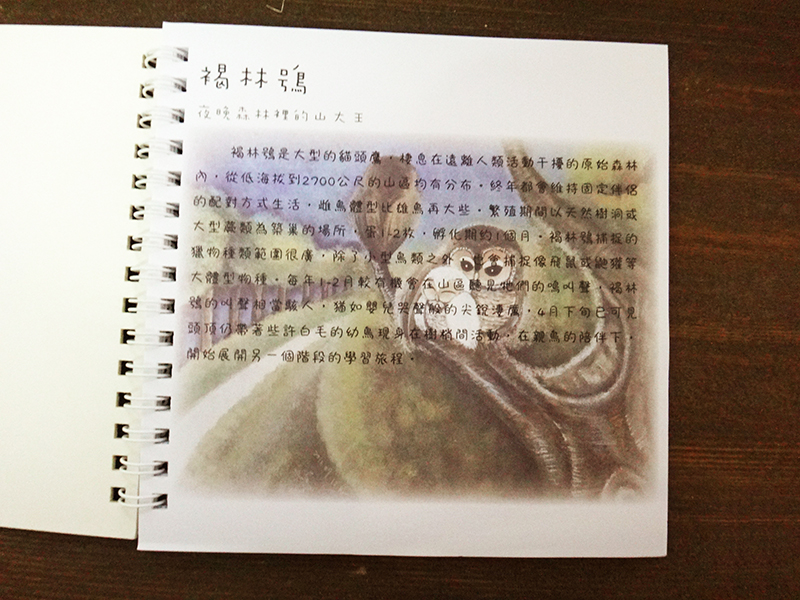 褐林鴞
夜晚森林裡的山大王
褐林鴞是大型的貓頭鷹，棲息在遠離人類活動干擾的原始森林
內，從低海拔到2700公尺的山區均有分布。終年都會維持固定伴侶
的配對方式生活，雌鳥體型比雄鳥再大些。繁殖期間以天然樹洞或
大型蕨類為築巢的場所，蛋1-2枚，孵化期約1個月。褐林鴞捕捉的
獵物種類範圍很廣，除了小型鳥類之外，也會捕捉像飛鼠或鼬獾等
大體型物種。每年1-2月較有機會在山區聽是牠們的鳴叫聲，褐林
鴞的叫聲相當駭人，猶如嬰兒哭聲般的尖銳淒厲。4月下旬已可見
頭頂仍帶著些許白毛的幼鳥現身在樹梢間活動，在親鳥的陪伴下，
開始展開另一個階段的學習旅程。